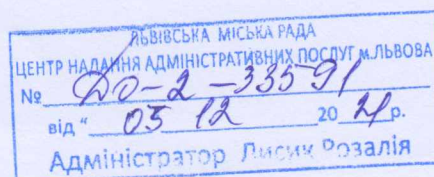 ЛЬВІВСЬКА МІСЬКА РАДА
ЦЕНТР НАДАННЯ АДМІНІСТРАТИВНИХ ПОСЛУГ м.ЛЬВОВА
№ До-2-33591
від " 03 12 20 21 р.
Адміністратор Лисик Розалія